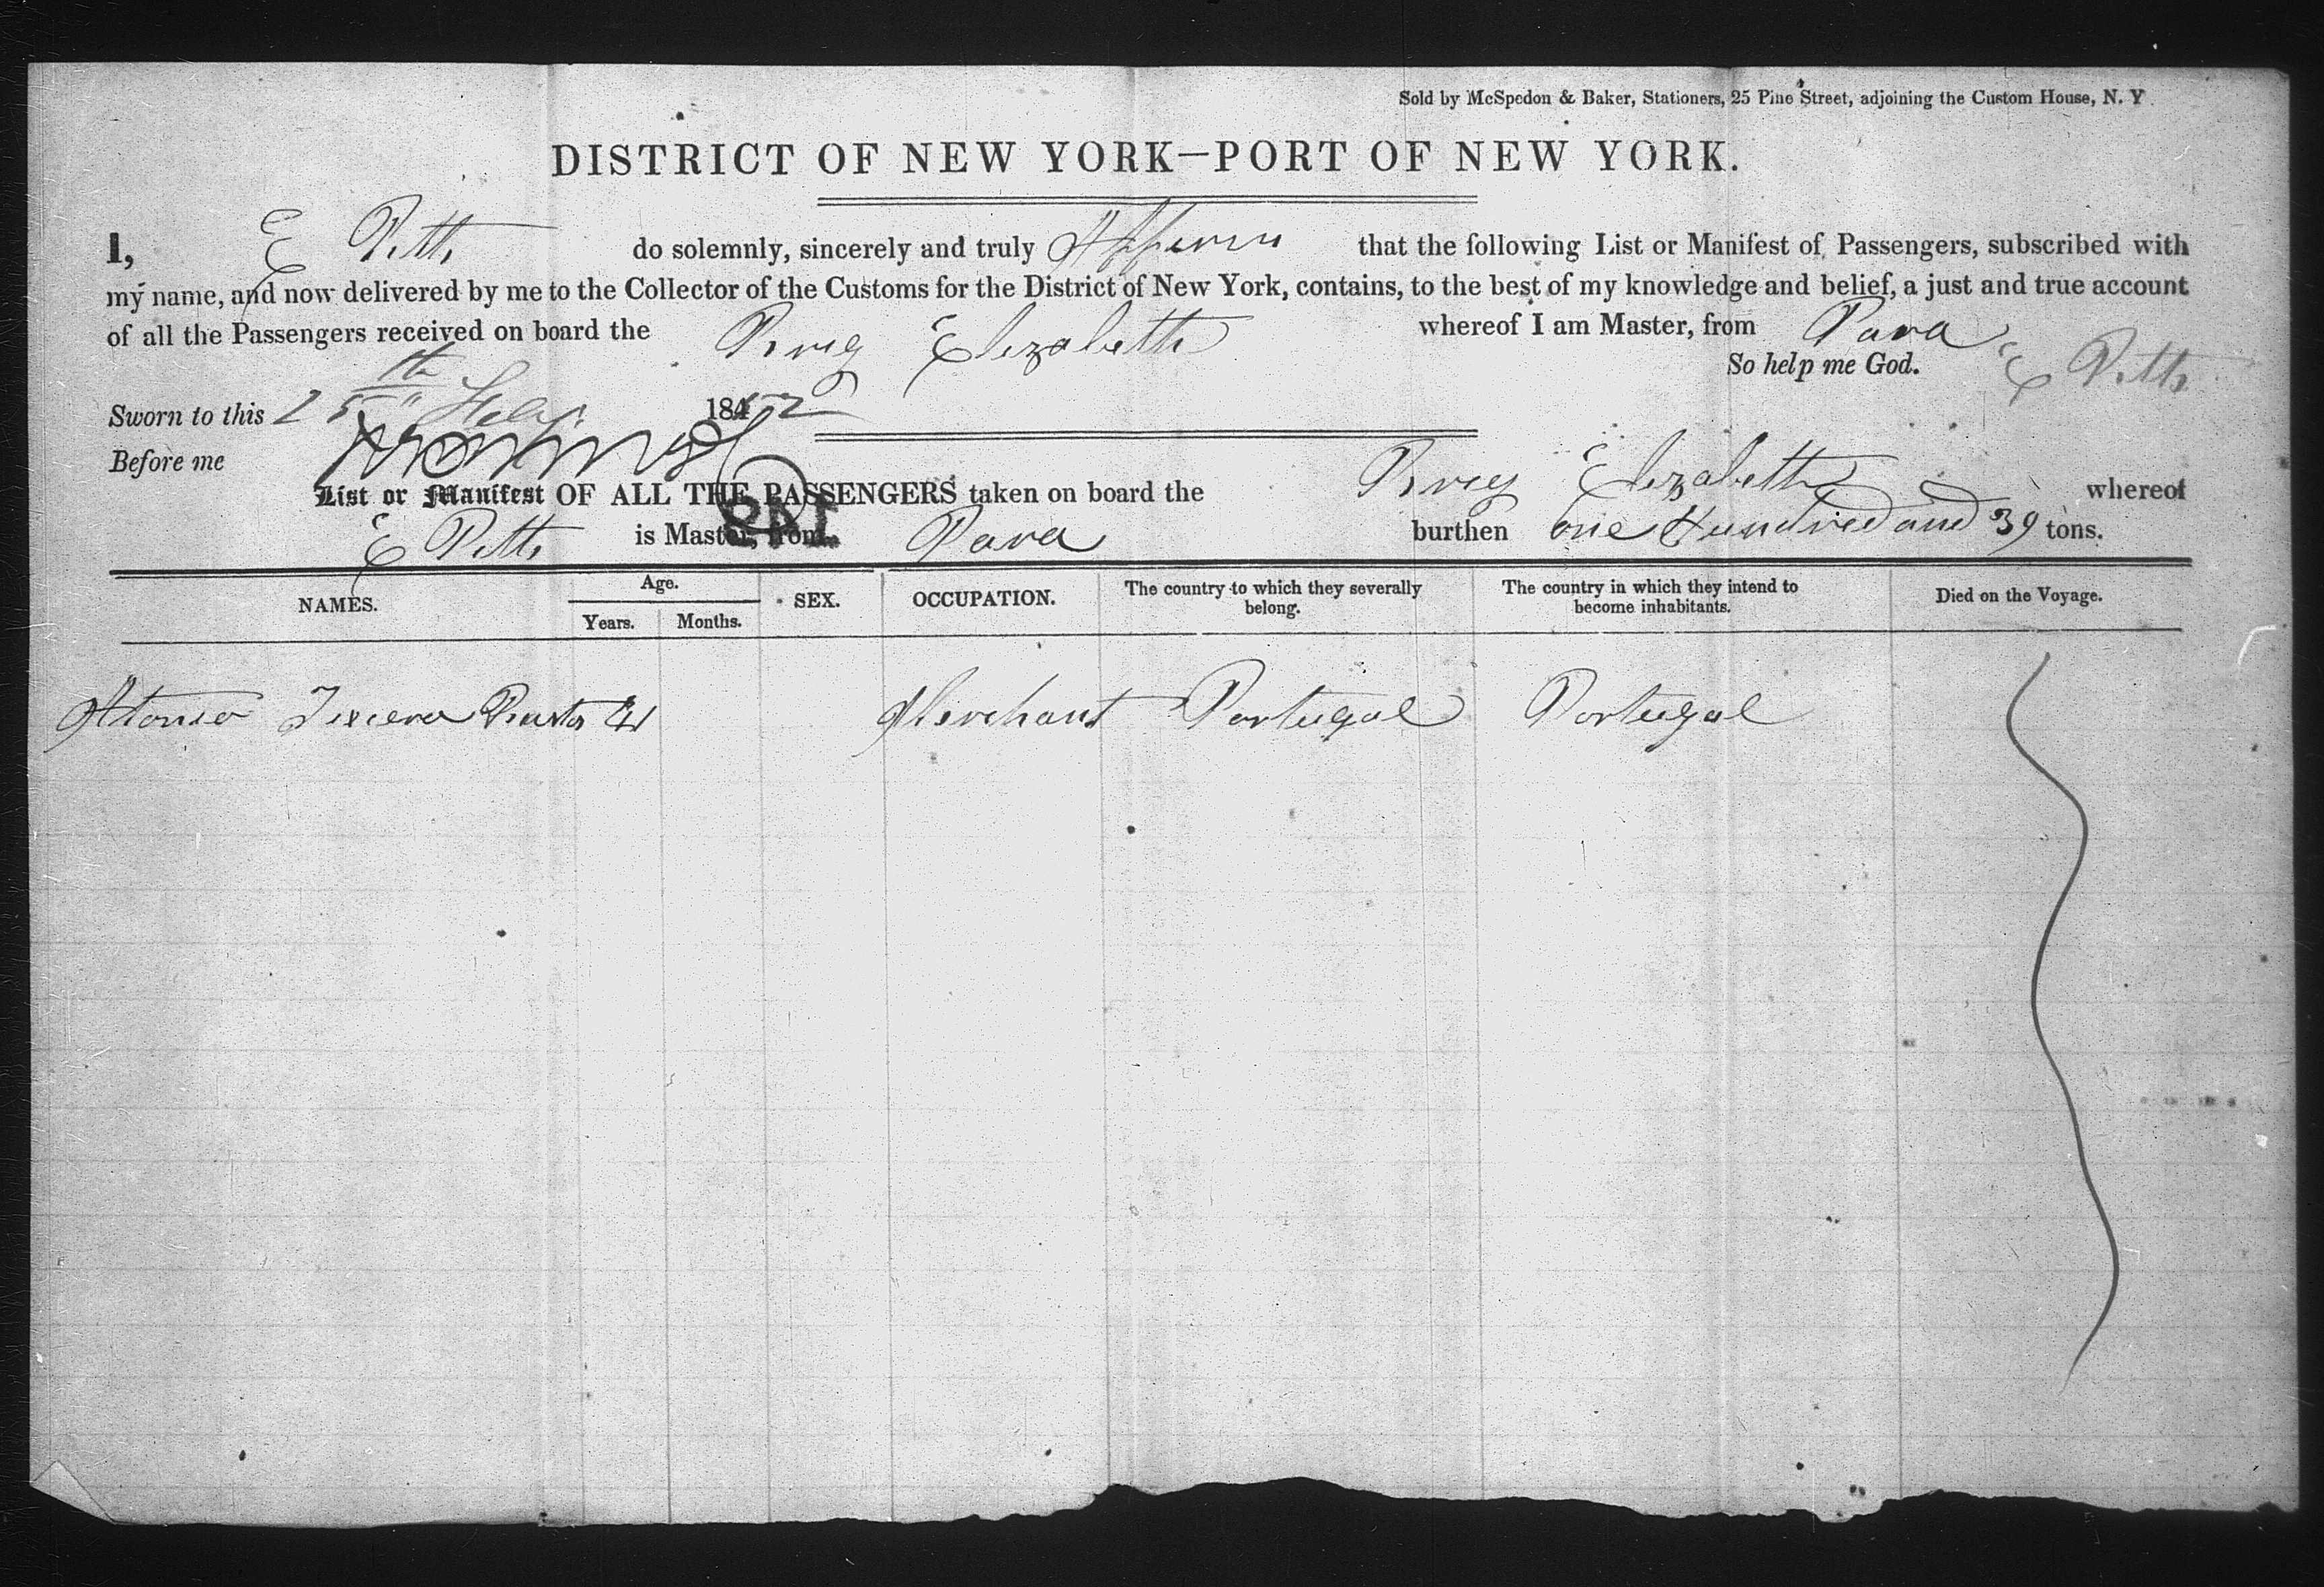 Sold by McSpedon & Baker, Stationers, 25 Pine Street, adjoining the Custom House, N. Y.
DISTRICT OF NEW YORK—PORT OF NEW YORK.
I, E Pitts do solemnly, sincerely and truly Affirm that the following List or Manifest of Passengers, subscribed with
my name, and now delivered by me to the Collector of the Customs for the District of New York, contains, to the best of my knowledge and belief, a just and true account
of all the Passengers received on board the Brig Elizabeth whereof I am Master, from Para
So help me God. E Pitts
Sworn to this 25th 1852
Before me
List or Manifest OF ALL THE PASSENGERS taken on board the Brig Elizabeth whereof
E Pitts is Master, from Para burthen one Hundred and 39 tons.
NAMES. Age. Years. Months. SEX. OCCUPATION. The country to which they severally belong. The country in which they intend to become inhabitants. Died on the Voyage.
Merchant Portugal Portugal